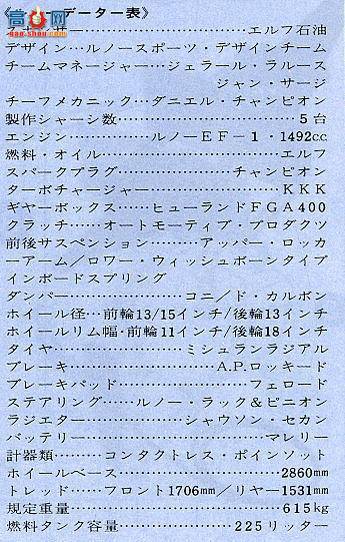 データー表》
エルフ石油
デザイン…ルノースポーツ・デザインチーム
チームマネージャー…ジェラール・ラルース
ジャン・サージ
チーフメカニック…ダニエル・チャンピオン
製作シャーシ数……………………5台
エンジン………ルノーEF－1・1492cc
燃料・オイル……………………エルフ
スパークプラグ……………チャンピオン
ターボチャージャー………………KKK
ギヤーボックス……ヒューランドFGA400
クラッチ……オートモーティブ・プロダクツ
前後サスペンション………アッパー・ロッカ
ーアーム／ロワー・ウィッシュボーンタイプ
インボードスプリング
ダンパー………………コニ／ド・カルボン
ホイール径…前輪13/15インチ/後輪13インチ
ホイールリム幅・前輪11インチ/後輪18インチ
タイヤ………………ミシュランラジアル
ブレーキ………………A.P.ロッキード
ブレーキパッド………………フェロード
ステアリング……ルノー・ラック&ピニオン
ラジエター…………シャウソン・セカン
バッテリー……………………マレリー
計器類………コンタクトレス・ポインソット
ホイールベース…………………2860mm
トレッド……フロント1706mm／リヤー1531mm
規定重量………………………615kg
燃料タンク容量……………225リッター